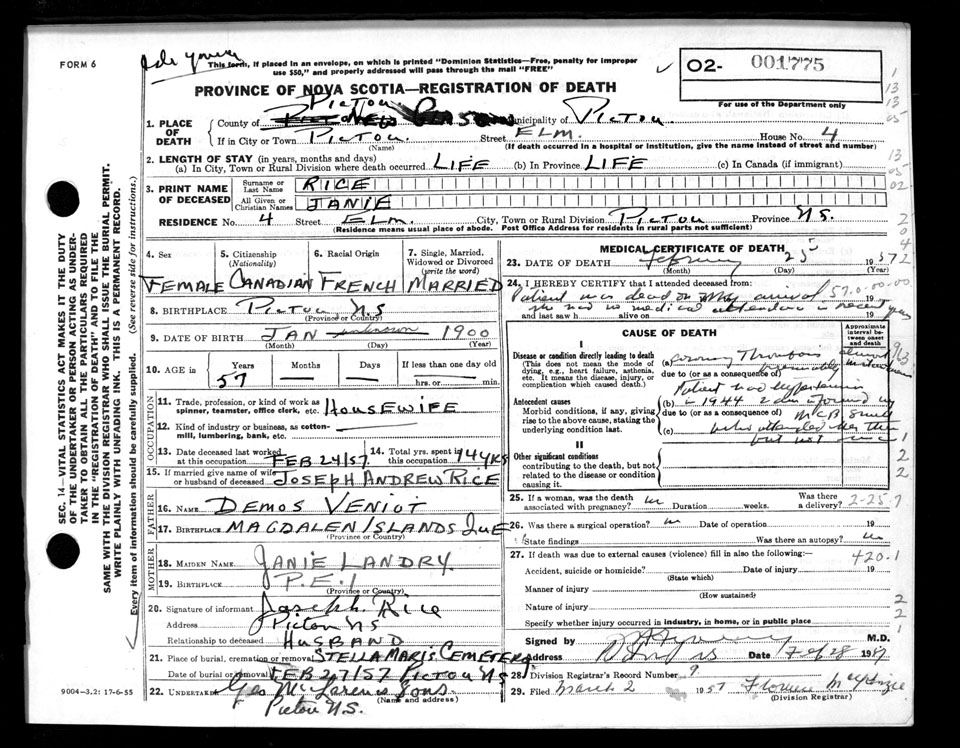 FORM 6
This form, if placed in an envelope, on which is printed "Dominion Statistics—Free, penalty for improper
use $50," and properly addressed will pass through the mail "FREE"
O2- 001775
For use of the Department only
PROVINCE OF NOVA SCOTIA—REGISTRATION OF DEATH
1. PLACE OF DEATH
County of PICTOU Municipality of PICTOU
If in City or Town PICTOU. Street ELM. House No. 4
(Name) (If death occurred in a hospital or institution, give the name instead of street and number)
2. LENGTH OF STAY (in years, months and days)
(a) In City, Town or Rural Division where death occurred LIFE (b) In Province LIFE (c) In Canada (if immigrant)
3. PRINT NAME OF DECEASED
Surname or Last Name RICE
All Given or Christian Names JANIE
RESIDENCE No. 4 Street ELM. City, Town or Rural Division PICTOU Province N.S.
(Residence means usual place of abode. Post Office Address for residents in rural parts not sufficient)
4. Sex 5. Citizenship (Nationality) 6. Racial Origin 7. Single, Married, Widowed or Divorced (write the word)
FEMALE CANADIAN FRENCH MARRIED
8. BIRTHPLACE PICTOU N.S
(Province or Country)
9. DATE OF BIRTH JAN unknown 1900
(Month) (Day) (Year)
10. AGE in Years Months Days If less than one day old
57 hrs. or min.
OCCUPATION
11. Trade, profession, or kind of work as
spinner, teamster, office clerk, etc. HOUSEWIFE
12. Kind of industry or business, as cotton-
mill, lumbering, bank, etc.
13. Date deceased last worked at this occupation FEB 24/57 14. Total yrs. spent in this occupation 14 YRS
15. If married give name of wife
or husband of deceased JOSEPH ANDREW RICE
FATHER
16. NAME DEMOS VENIOT
17. BIRTHPLACE MAGDALEN ISLANDS QUE
(Province or Country)
MOTHER
18. MAIDEN NAME JANIE LANDRY.
19. BIRTHPLACE P.E.I
(Province or Country)
20. Signature of informant Joseph Rice
Address Pictou NS
Relationship to deceased HUSBAND
21. Place of burial, cremation or removal STELLA MARIS CEMETERY
Date of burial or removal FEB 27/57 PICTOU N.S
22. UNDERTAKER Geo Sons
(Name and address)
Pictou N.S.
9004-3.2: 17-6-55
MEDICAL CERTIFICATE OF DEATH
23. DATE OF DEATH February 25 1957
(Month) (Day) (Year)
24. I HEREBY CERTIFY that I attended deceased from:
Patient was dead on my arrival 57.0.00-00
and last saw h alive on
CAUSE OF DEATH
Approximate interval between onset and death
I
Disease or condition directly leading to death
(This does not mean the mode of
dying, e.g., heart failure, asthenia,
etc. It means the disease, injury, or
complication which caused death.)
(a) Coronary Thrombosis
due to (or as a consequence of)
Patient had hypertension
Antecedent causes
Morbid conditions, if any, giving
rise to the above cause, stating the
underlying condition last.
(b) in 1944
due to (or as a consequence of)
(c) who attended her then
but not
II
Other significant conditions
contributing to the death, but not
related to the disease or condition
causing it.
25. If a woman, was the death associated with pregnancy? no Duration weeks. Was there a delivery? 2-25-7
26. Was there a surgical operation? no Date of operation 19
State findings Was there an autopsy? no
27. If death was due to external causes (violence) fill in also the following:—
420.1
Accident, suicide or homicide? Date of injury 19
(State which)
Manner of injury
(How sustained)
Nature of injury
Specify whether injury occurred in industry, in home, or in public place
Signed by M.D.
Address Date Feb 28 1957
28. Division Registrar's Record Number 9
29. Filed March 2 1957 Florence
(Division Registrar)
SEC. 14—VITAL STATISTICS ACT MAKES IT THE DUTY
OF THE UNDERTAKER OR PERSON ACTING AS UNDER-
TAKER TO OBTAIN ALL THE PARTICULARS REQUIRED
IN THE "REGISTRATION OF DEATH" AND TO FILE THE
SAME WITH THE DIVISION REGISTRAR WHO SHALL ISSUE THE BURIAL PERMIT.
WRITE PLAINLY WITH UNFADING INK. THIS IS A PERMANENT RECORD.
Every item of information should be carefully supplied. (See reverse side for instructions.)